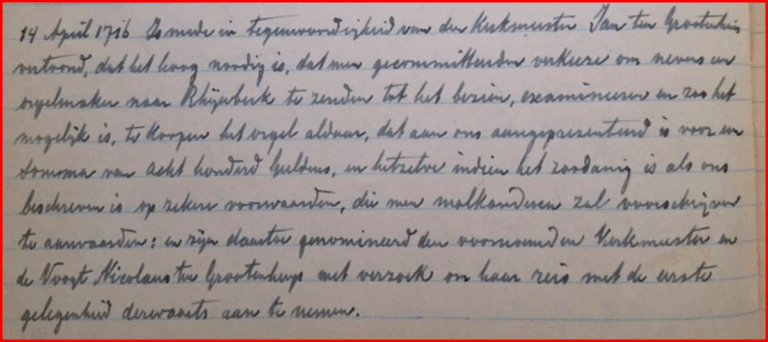 14 April 1716 Is mede in tegenwoordigheid van den Kerkmeester Jan ten Grootenhuis
vertoond, dat het hoog noodig is, dat men gecommitteerden verkieze om nevens een
orgelmaker naar Rhijnberk te zenden tot het bezien, examineeren en zoo het
mogelijk is, te koopen het orgel aldaar, dat aan ons aangepresenteerd is voor een
somma van acht honderd guldens, en hetzelve indien het zoodanig is als ons
beschreven is op zekere voorwaarden, die men malkanderen zal voorschrijven
te aanvaarden: en zijn daartoe genomineerd den voornoemden Kerkmeester en
de Voogt Nicolaus ten Grootenhuys met verzoek om haar reis met de eerste
gelegenheid derewaarts aan te nemen.